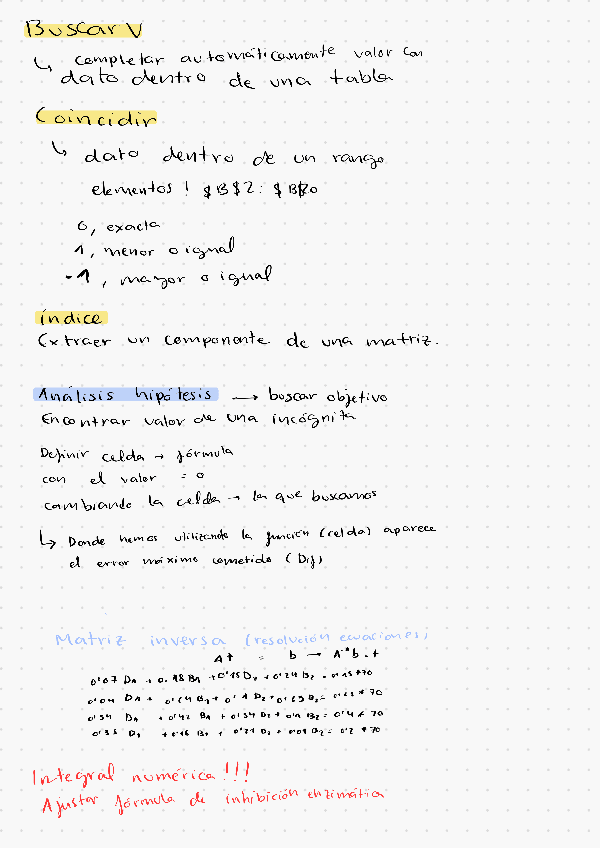 Buscar V
↳ completar automáticamente valor con
dato dentro de una tabla
Coincidir
↳ dato dentro de un rango
elementos ! $B$2:$B$20
0, exacta
1, menor o igual
-1, mayor o igual
índice
Extraer un componente de una matriz.
Análisis hipótesis → buscar objetivo
Encontrar valor de una incógnita
Definir celda → fórmula
con el valor = 0
cambiando la celda → la que buscamos
↳ Donde hemos utilizando la función (celda) aparece
el error máximo cometido (Dif)
Matriz inversa (resolución ecuaciones)
0'07 D1 + 0.18 B1 + 0'15 D2 + 0'24 B2 = 0'15*70
0'04 D1 + 0'24 B1 + 0'1 D2 + 0'65 B2 = 0'25*70
0'54 D1 + 0'42 B1 + 0'54 D2 + 0'1 B2 = 0'4*70
0'35 D1 + 0'16 B1 + 0'21 D2 + 0'01 B2 = 0'2*70
Integral numérica!!!
Ajustar fórmula de inhibición enzimática